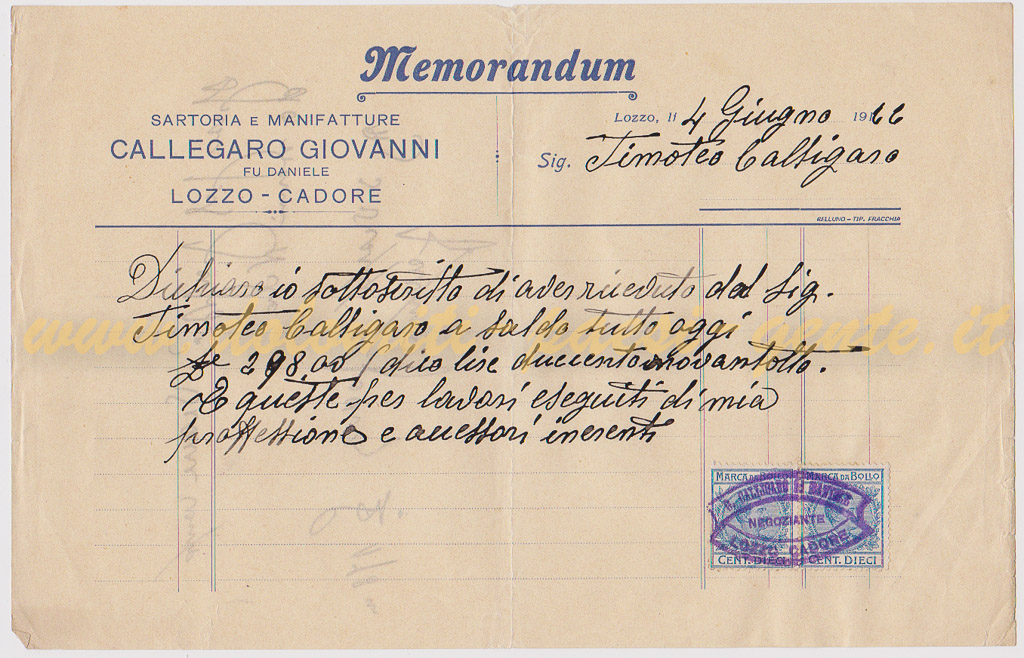 Memorandum
SARTORIA E MANIFATTURE
CALLEGARO GIOVANNI
FU DANIELE
LOZZO - CADORE
Lozzo, li 4 Giugno 19
Sig. Timoteo Calligaro
BELLUNO - TIP. FRACCHIA
Dichiaro io sottoscritto di aver ricevuto dal Sig.
Timoteo Calligaro a saldo tutto oggi
£ 298.00 (dico lire duecentonovantotto.
E queste per lavori eseguiti di mia
proffessione e accessori inerenti
MARCA DA BOLLO MARCA DA BOLLO
NEGOZIANTE
LOZZO CADORE
CENT. DIECI CENT. DIECI